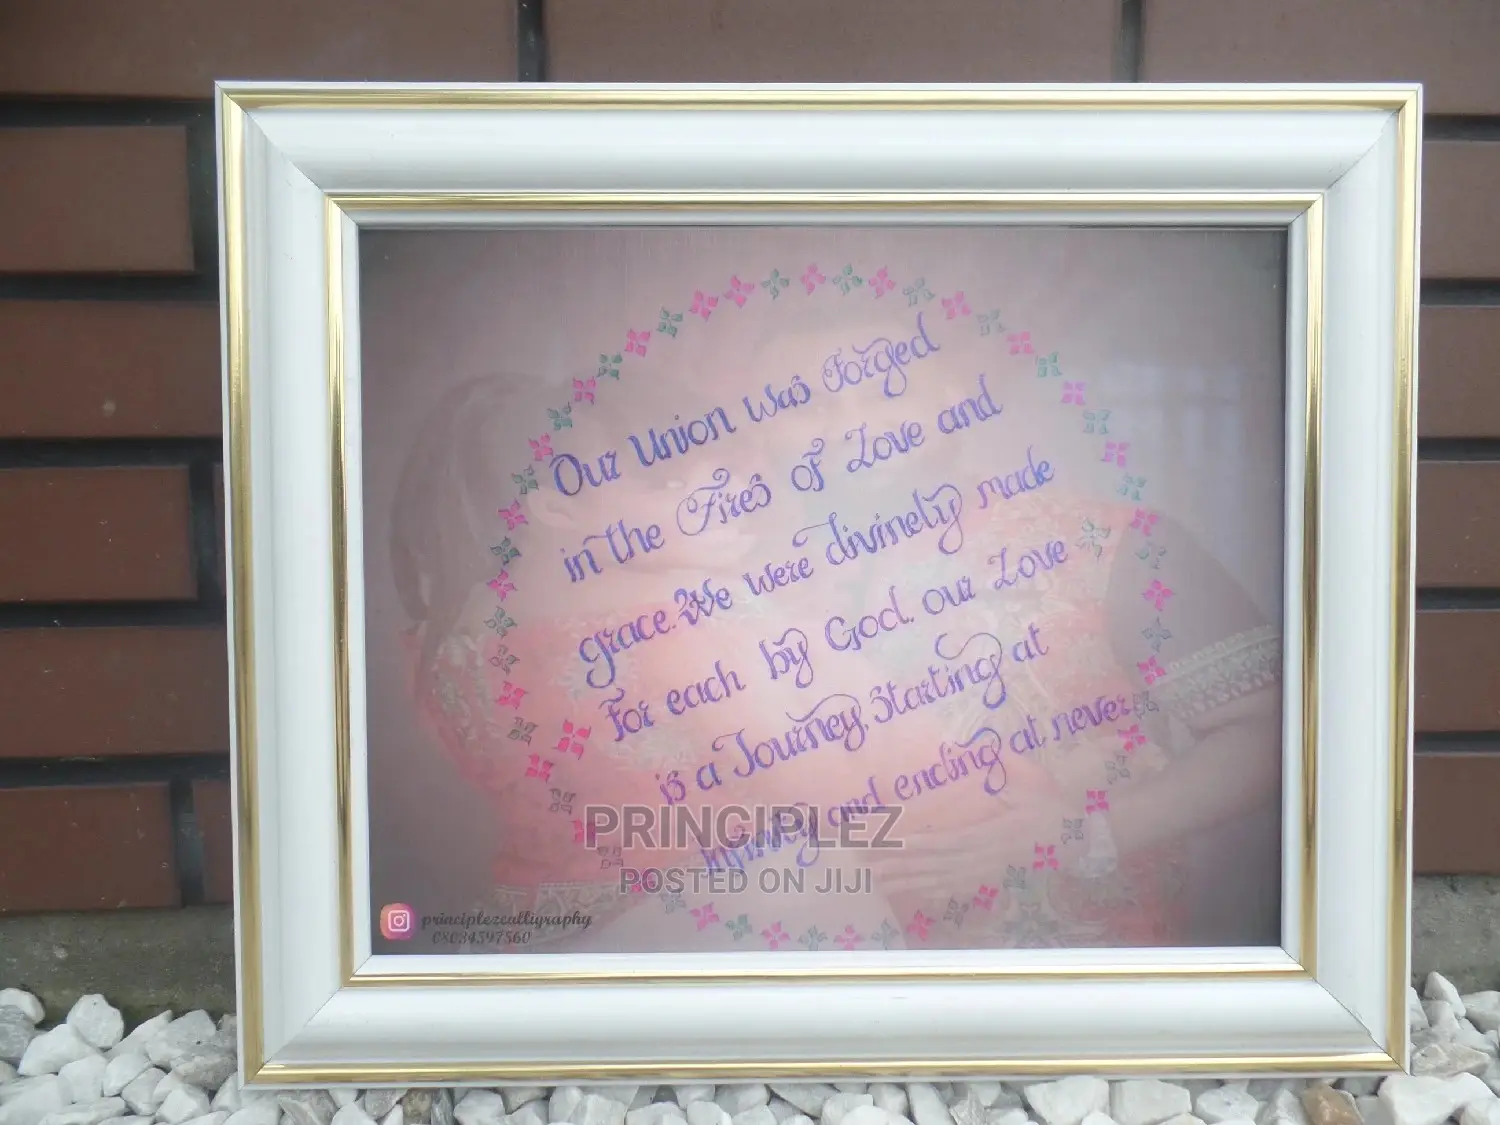 Our Union was Forged
in the Fires of Love and
grace. We were divinely made
For each by God. our Love
is a Journey, Starting at
Infinity and ending at never
PRINCIPLEZ
POSTED ON JIJI
principlezcalligraphy
08034597560